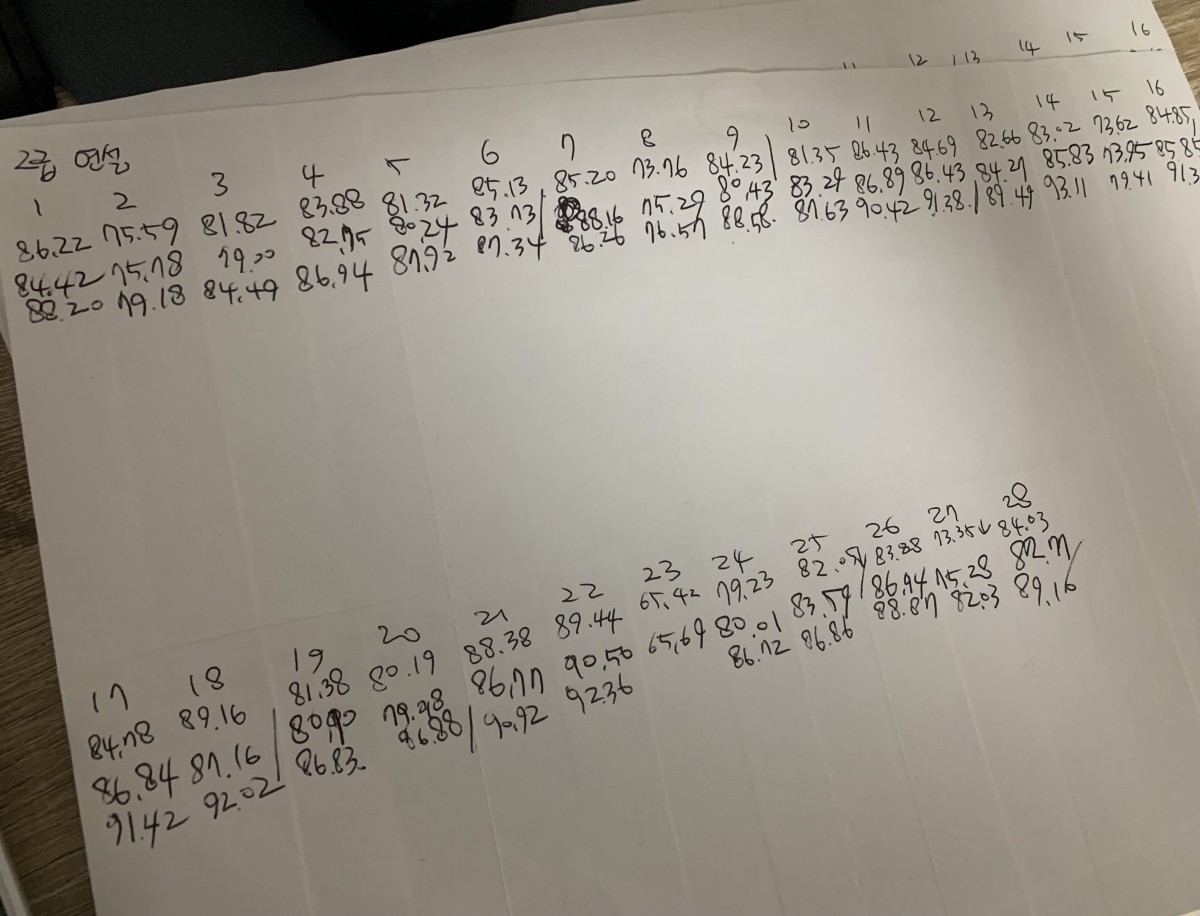 11 12 13 14 15 16
2급 연설
1 2 3 4 5 6 7 8 9 10 11 12 13 14 15 16
86.22 75.59 81.82 83.88 81.32 85.13 85.20 73.76 84.23 81.35 86.43 84.69 82.66 83.02 73.62 84.85
84.42 75.78 79.00 82.75 80.24 83.73 88.16 75.29 80.43 83.29 86.89 86.43 84.27 85.83 73.95 85.85
88.20 79.18 84.49 86.94 87.92 87.34 86.26 76.57 88.58 87.63 90.42 91.38 89.49 93.11 79.41 91.3
17 18 19 20 21 22 23 24 25 26 27 28
84.78 89.16 81.38 80.19 88.38 89.44 65.42 79.23 82.05 83.88 73.35 84.03
86.84 87.16 80.90 79.98 86.77 90.50 65.69 80.01 83.59 86.94 75.28 82.77
91.42 92.02 86.83 86.88 90.92 92.36 86.72 86.86 88.87 82.03 89.16